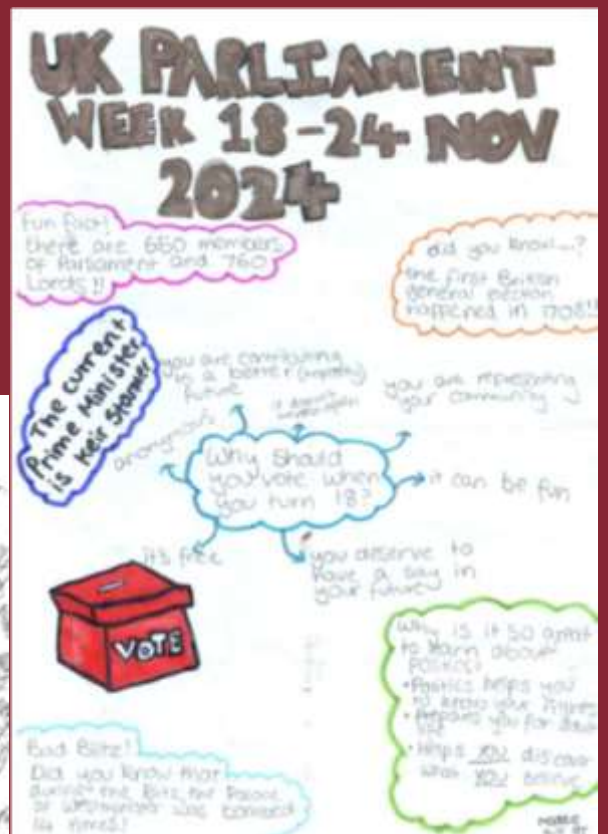 UK PARLIAMENT
WEEK 18-24 NOV
2024
Fun Fact!
there are 650 members
of Parliament and 760
Lords!!
did you know...?
the first British
general election
happened in 1708!!
The current
Prime Minister
is Keir Starmer
you are contributing
to a better
future
you are representing
your community
anonymous
Why should
you vote when
you turn 18?
it can be fun
it's free
you deserve to
have a say in
your future
VOTE
Why is it so great
to learn about
Politics?
•Politics helps you
to know your rights
•Prepares you for
life
•Helps YOU discover
what YOU believe
Bad Blitz!
Did you know that
during the Blitz, the Palace
of Westminster was bombed
14 times!